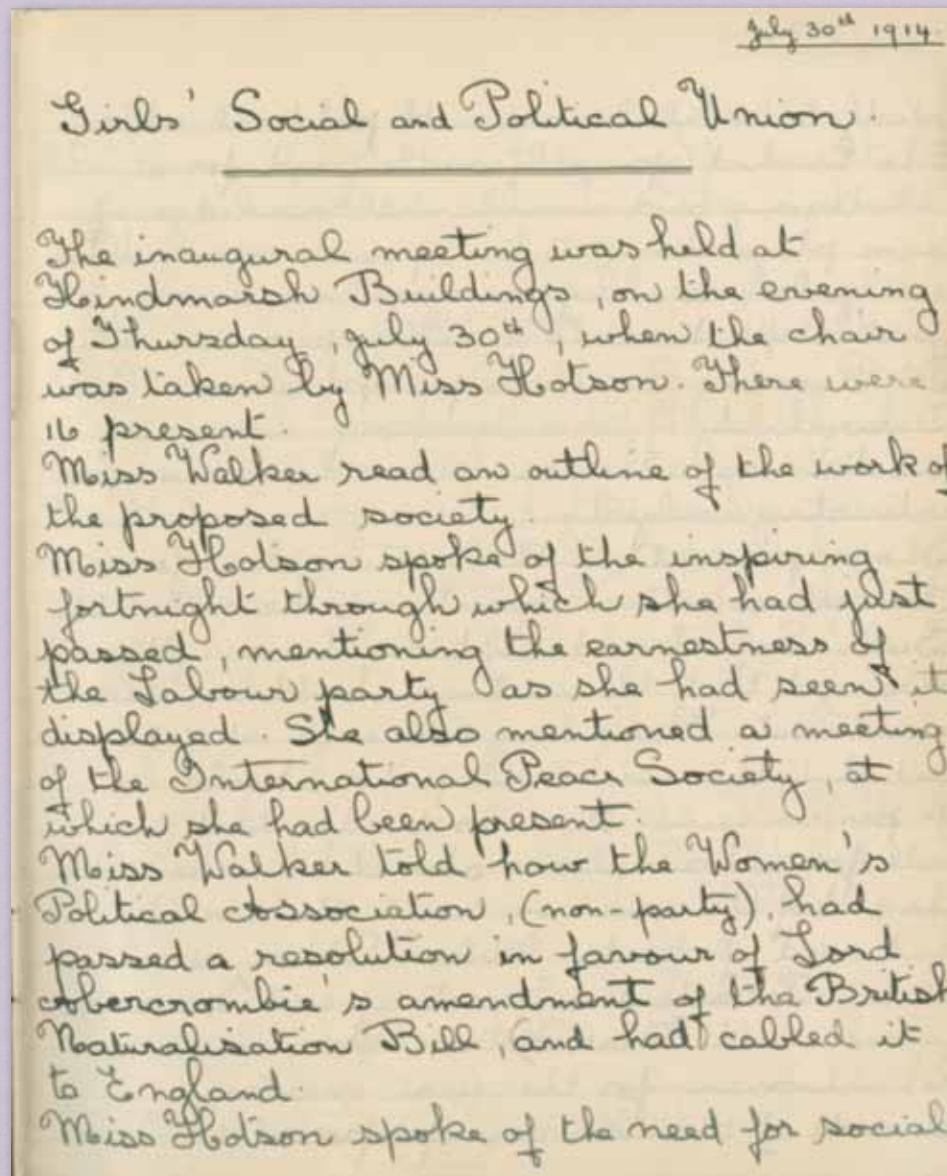 July 30th 1914
Girls' Social and Political Union.
The inaugural meeting was held at
Hindmarsh Buildings, on the evening
of Thursday, July 30th, when the chair
was taken by Miss Hotson. There were
16 present.
Miss Walker read an outline of the work of
the proposed society.
Miss Hotson spoke of the inspiring
fortnight through which she had just
passed, mentioning the earnestness of
the Labour party as she had seen it
displayed. She also mentioned a meeting
of the International Peace Society, at
which she had been present.
Miss Walker told how the Women's
Political Association, (non-party), had
passed a resolution in favour of Lord
Abercrombie's amendment of the British
Naturalisation Bill, and had cabled it
to England.
Miss Hotson spoke of the need for social